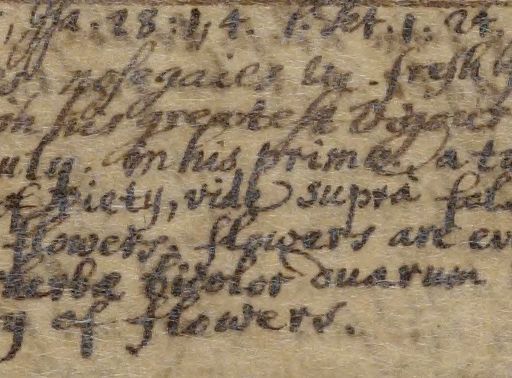 , Isa. 28: 1, 4. 1. Pet. 1. 24.
nosegaies
his greatest Vigour
in his prime, a
of piety, vide supra
flowers. flowers are
herba bicolor duarum
y of flowers.